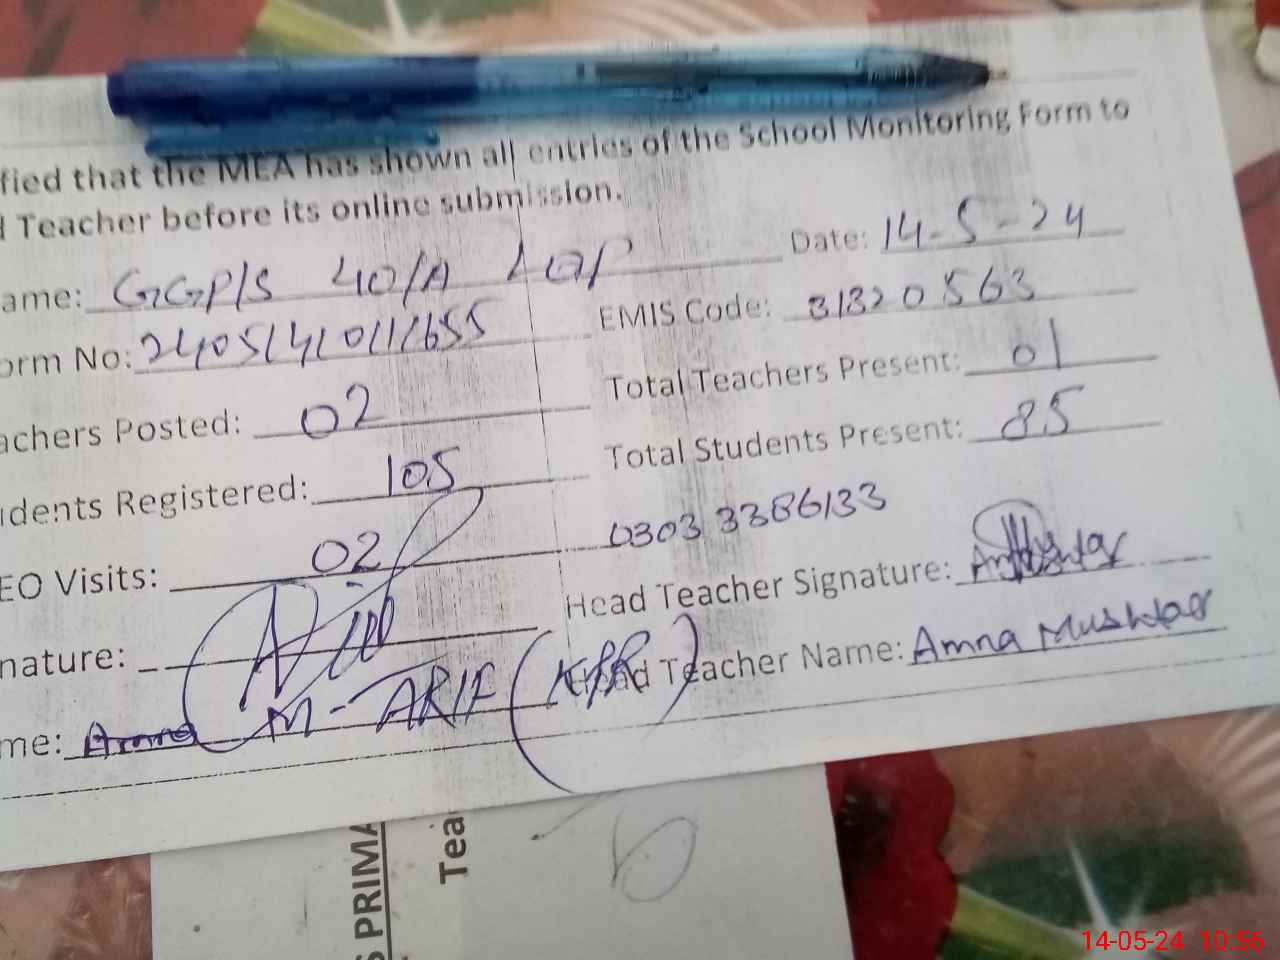 fied that the MEA has shown all entries of the School Monitoring Form to
d Teacher before its online submission.
ame: GGP/S 40/A Date: 14-5-24
orm No: EMIS Code: 31320563
achers Posted: 02 Total Teachers Present: 01
udents Registered: 105 Total Students Present: 85
EO Visits: 02 0303 3386133
nature: Head Teacher Signature:
me: Amna M-ARIF Head Teacher Name: Amna Mushtaq
S PRIMA
Tea
14-05-24 10:56